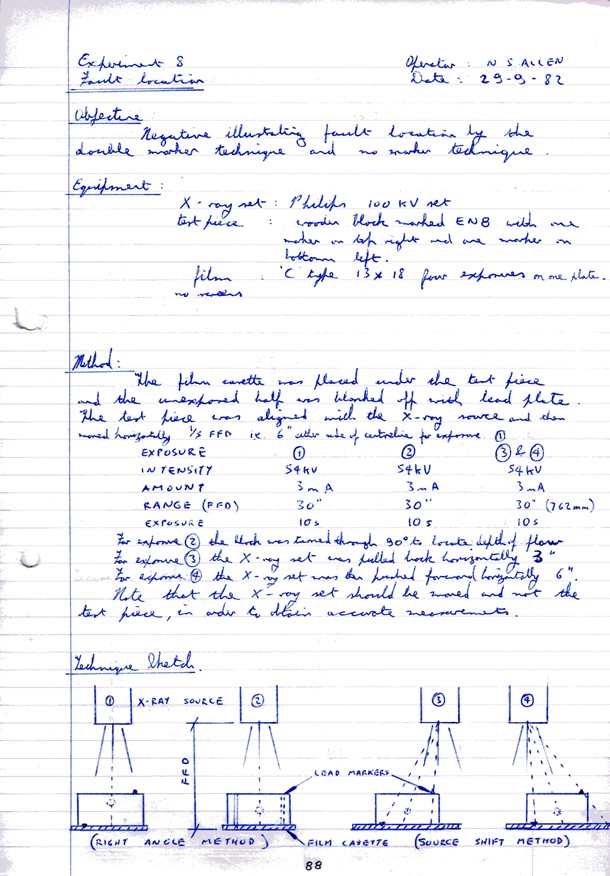 Experiment 8 Operator : N S ALLEN
Fault location Date : 29-9-82
Objective
Negative illustrating fault location by the
double marker technique and no marker technique.
Equipment :
X-ray set : Philips 100 KV set
test piece : wooden block marked EN8 with one
marker on top right and one marker on
bottom left.
film : 'C type 13 x 18 four exposures on one plate.
no screens
Method :
The film casette was placed under the test piece
and the unexposed half was blanked off with lead plate.
The test piece was aligned with the X-ray source and then
moved horizontally 1/5 FFD i.e. 6" either side of centreline for exposure. ①
EXPOSURE ① ② ③ & ④
INTENSITY 54KV 54KV 54KV
AMOUNT 3mA 3mA 3mA
RANGE (FFD) 30" 30" 30" (762mm)
EXPOSURE 10s 10s 10s
For exposure ② the block was turned through 90° to locate depth of flaw
For exposure ③ the X-ray set was pulled back horizontally 3"
For exposure ④ the X-ray set was then pushed forward horizontally 6".
Note that the X-ray set should be moved and not the
test piece, in order to obtain accurate measurements.
Technique Sketch.
① X-RAY SOURCE ② ③ ④
FFD
LEAD MARKERS
(RIGHT ANGLE METHOD) FILM CASETTE (SOURCE SHIFT METHOD)
88